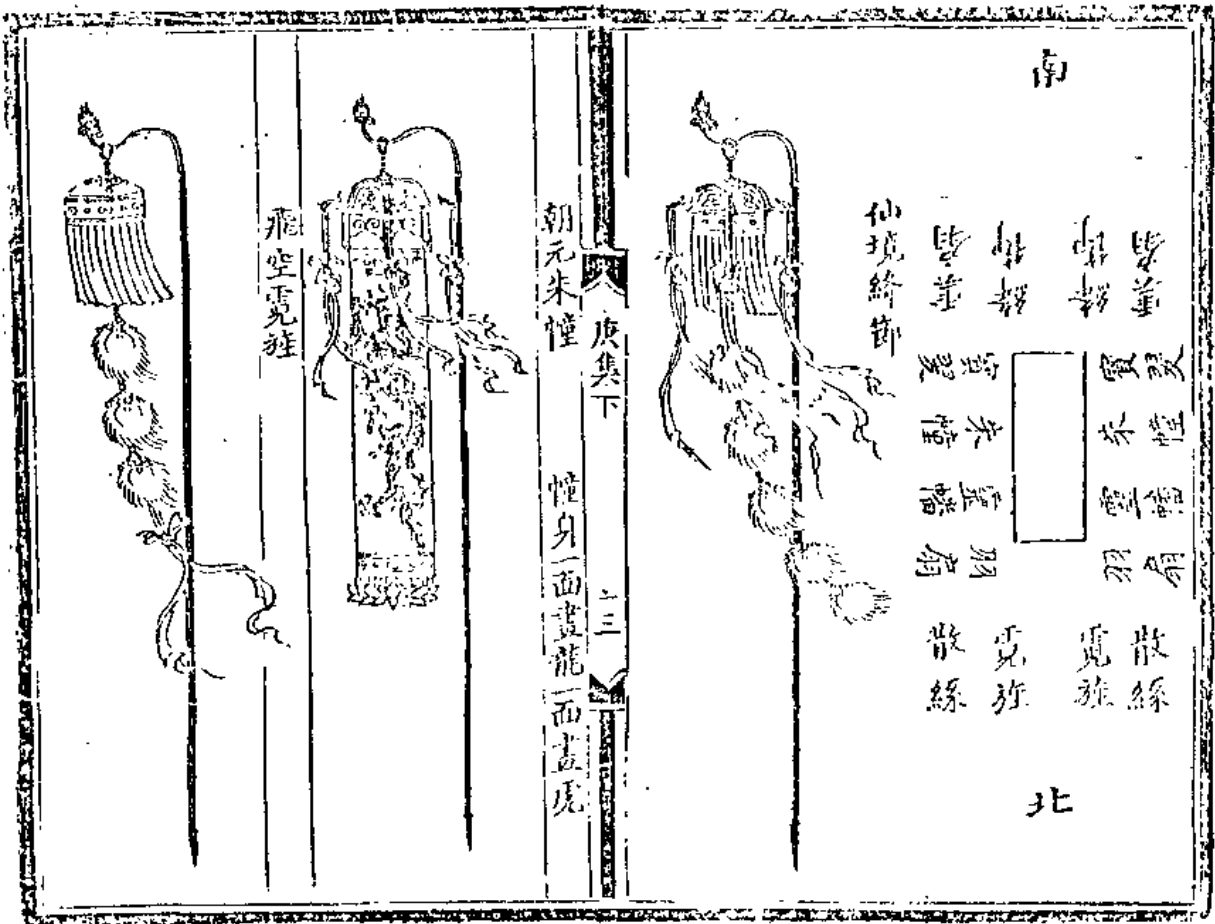 南
雲扇
絳節
絳節
雲扇
寶翣
朱幢
羽扇
寶翣
朱幢
羽扇
散絲
霓旌
霓旌
散絲
北
仙境絳節
庚集下
三
朝元朱幢 幢身一面畫龍一面畫虎
飛空霓旌